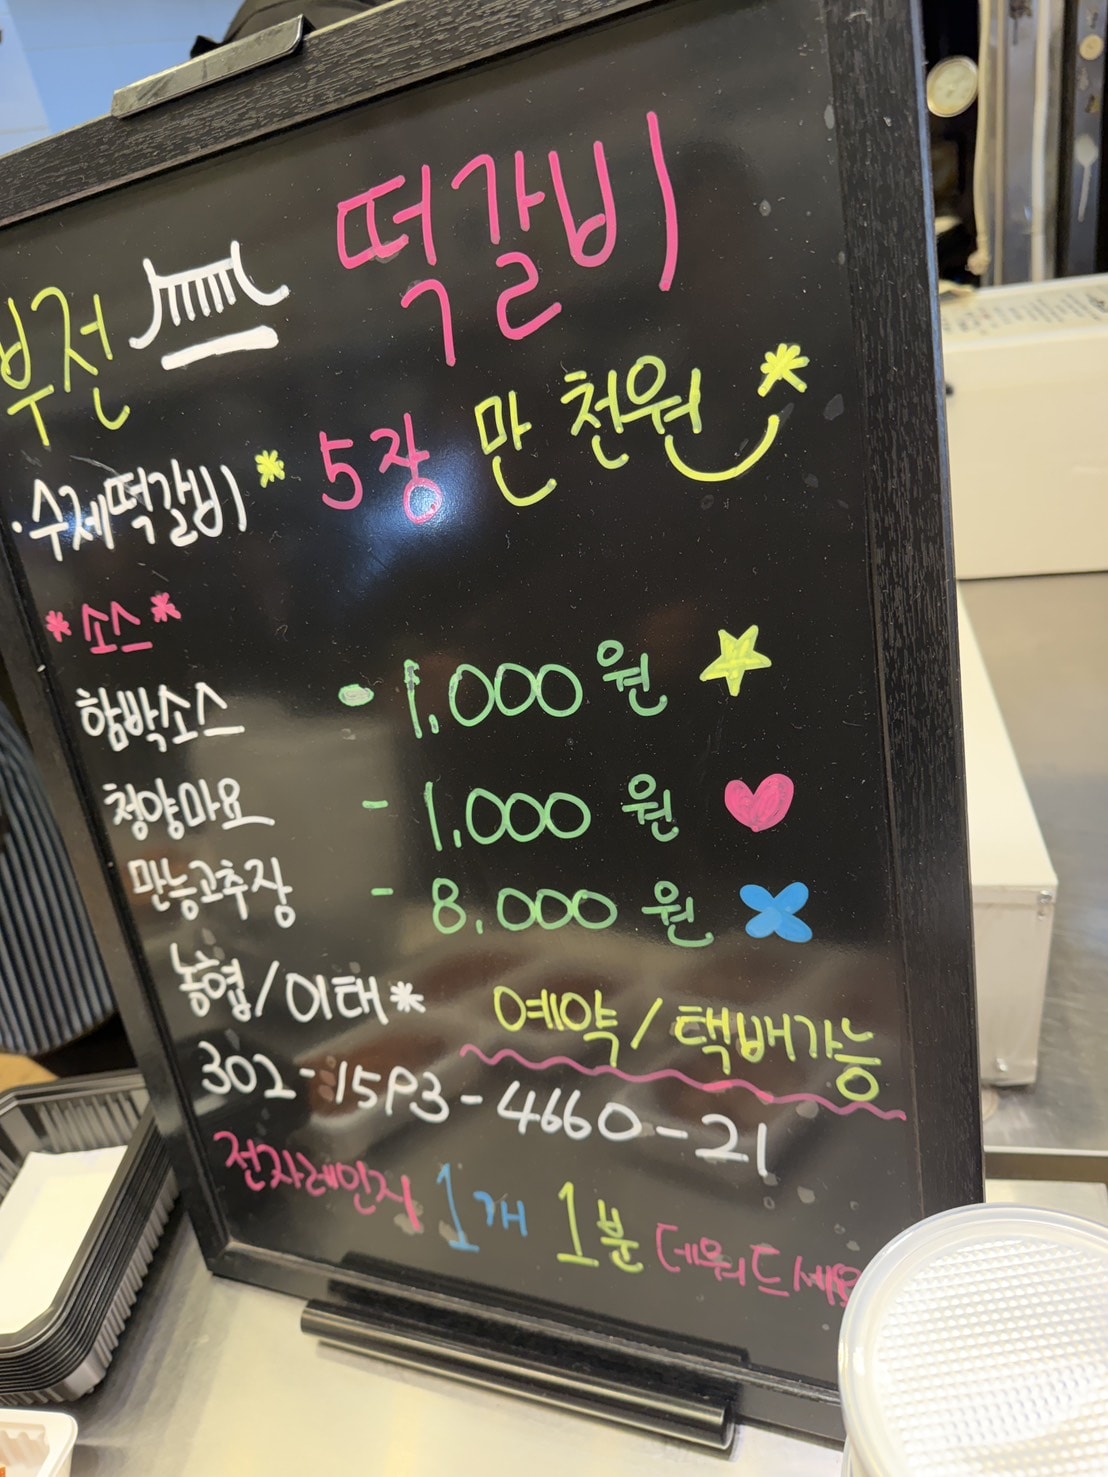 부전 떡갈비
·수제떡갈비 * 5장 만 천원 *
* 소스 *
함박소스 - 1,000원
청양마요 - 1,000원
만능고추장 - 8,000원
농협/이태* 예약/택배가능
302-1593-4660-21
전자레인지 1개 1분 데워드세요